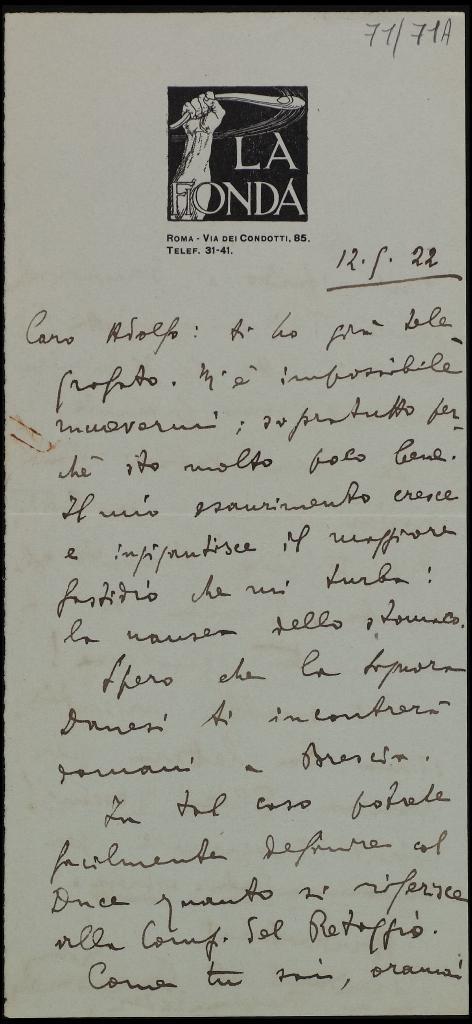 71/71A
LA
FIONDA
ROMA - VIA DEI CONDOTTI, 85.
TELEF. 31-41.
12. 9. 22
Caro Adolfo: ti ho già tele
grafato. M'è impossibile
muovermi; sopratutto per-
chè sto molto poco bene.
Il mio esaurimento cresce
e ingigantisce il maggiore
fastidio che mi turba:
la nausea dello stomaco.
Spero che la Signora
Danesi ti incontrerà
domani a Brescia.
In tal caso potrete
facilmente definire col
Duce quanto si riferisce
alla Comp. del Retaggio.
Come tu sai, oramai